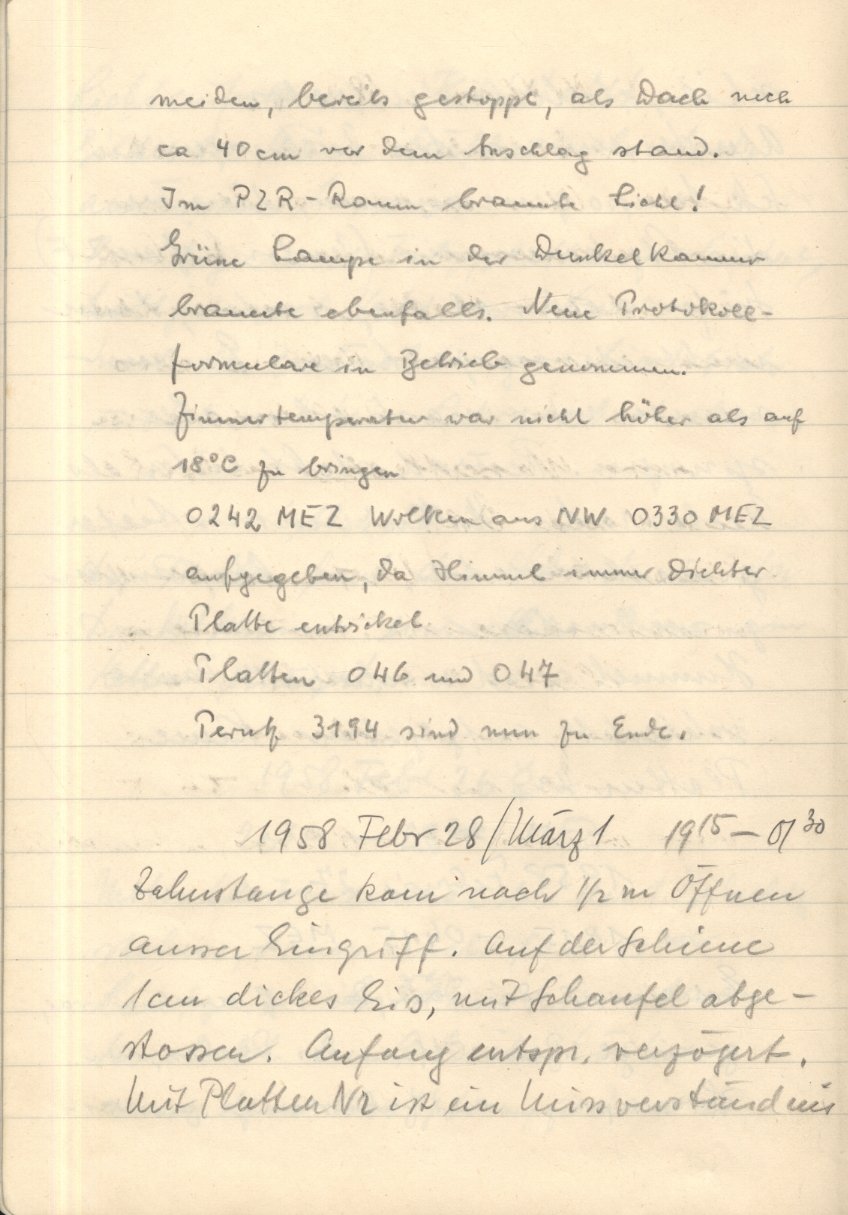 meiden, bereits gestoppt, als Dach noch
ca. 40 cm vor dem Anschlag stand.
Im PZR-Raum brannte Licht!
Grüne Lampe in der Dunkelkammer
brannte ebenfalls. Neue Protokoll-
formulare in Betrieb genommen.
Zimmertemperatur war nicht höher als auf
18°C zu bringen
0242 MEZ Wolken aus NW. 0330 MEZ
aufgegeben, da Himmel immer dichter.
Platte entwickelt.
Platten 046 und 047
Perutz 3194 sind nun zu Ende.
1958 Febr 28/März 1 19 15 – 01 30
Zahnstange kam nach 1/2 m Öffnen
ausser Eingriff. Auf der Schiene
1cm dickes Eis, mit Schaufel abge-
stossen. Anfang entspr. verzögert.
Mit Platten Nr ist ein Missverständnis